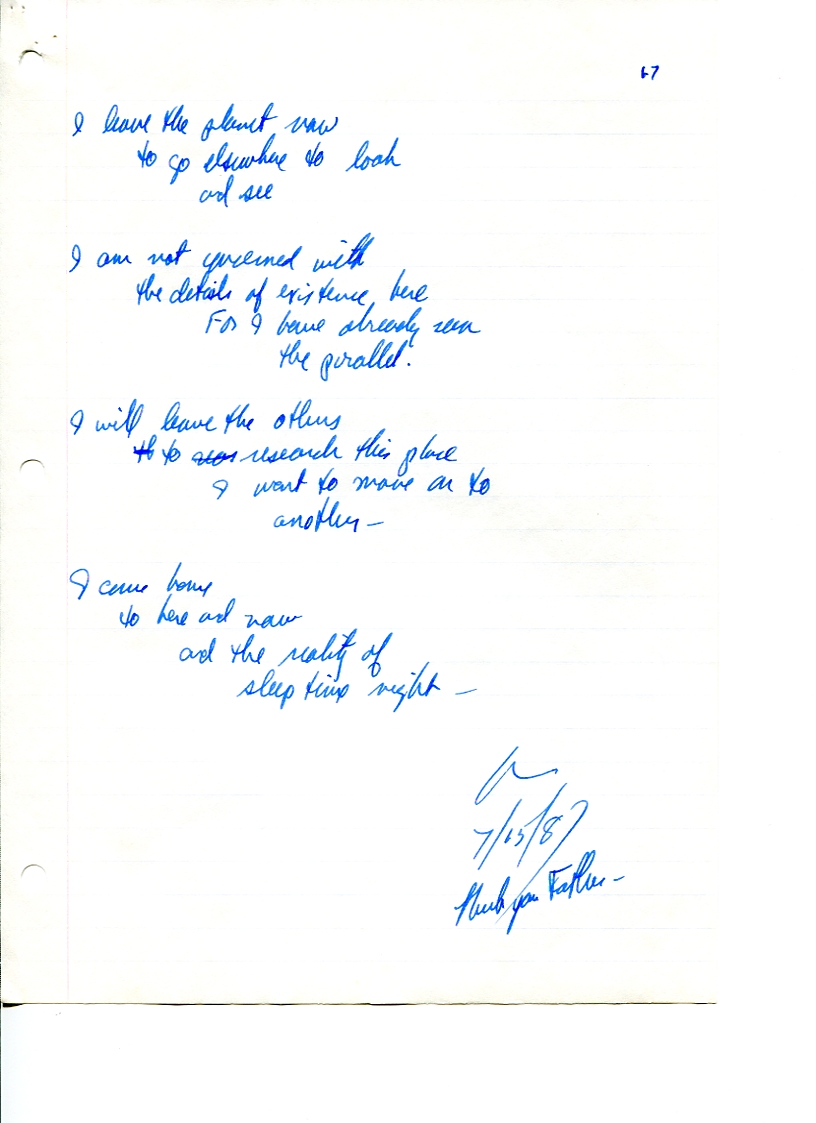 67
I leave the planet now
to go elsewhere to look
and see
I am not governed with
the details of existence here
For I have already seen
the parallel.
I will leave the others
to research this place
I want to move on to
another —
I come home
to here and now
and the reality of
sleep time night —
7/15/87
Thank you Father —